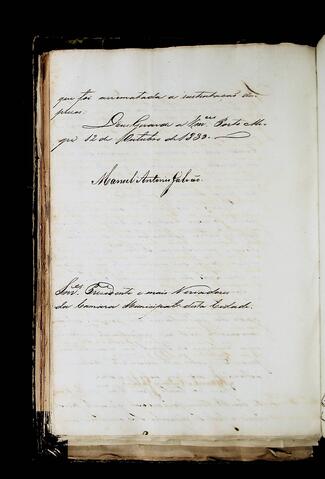 que foi arrematada a sustentação dos
presos.
Deos Guarde a Vm.ces Porto Ale-
gre 12 de Outubro de 1830.
Manoel Antonio Galvão
Snr.es Presidente e mais Vereadores
da Camara Municipal desta Cidade.